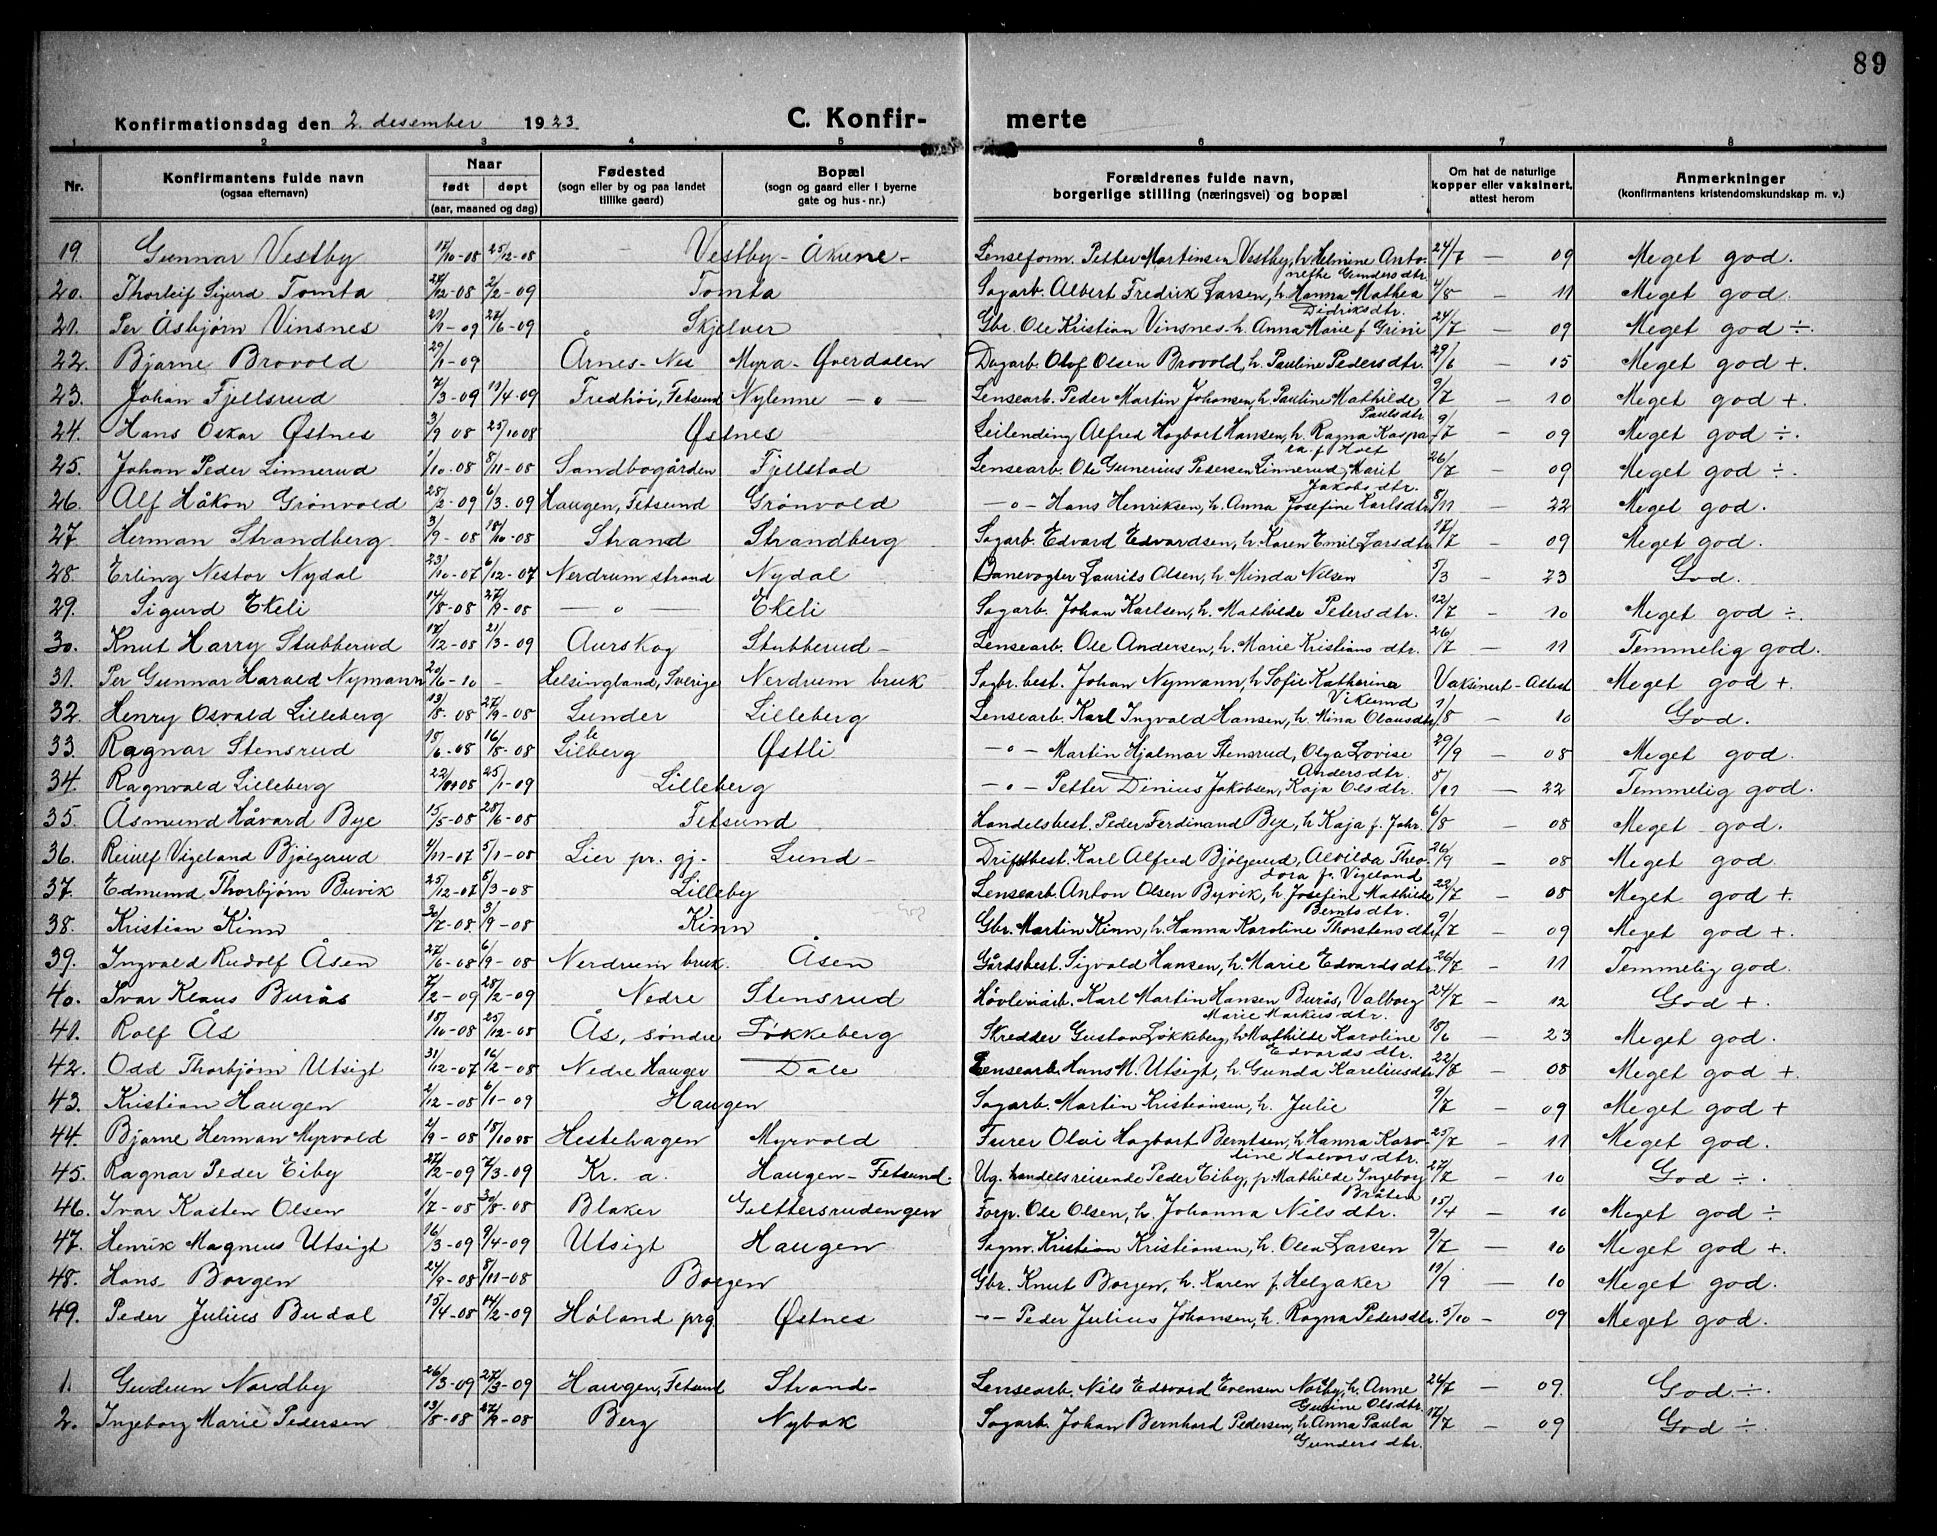 89
Konfirmationsdag den 2. desember 1923 C. Konfir- merte
1 2 3 4 5 6 7 8
Nr. Konfirmantens fulde navn (ogsaa efternavn) Naar født døpt (aar, maaned og dag) Fødested (sogn eller by og paa landet tillike gaard) Bopæl (sogn og gaard eller i byerne gate og hus-nr.) Forældrenes fulde navn, borgerlige stilling (næringsvei) og bopæl Om hat de naturlige kopper eller vaksinert, attest herom Anmerkninger (konfirmantens kristendomskundskap m. v.)
19. Gunnar Vestby 12/10-08 25/12-08 Vestby - Åkrene - Lenseform. Petter Martinsen Vestby, h. Helmine Anto- 24/7 - 09 Meget god.
nette Gundersdtr.
20. Thorleif Sigurd Tomta 24/12-08 2/2-09 Tomta Sagarb. Albert Fredrik Larsen, h. Hanna Mathea 4/8 - 11 Meget god.
Didriksdtr.
21. Per Åsbjørn Vinsnes 21/1-09 27/6-09 " Skjelver Gbr. Ole Kristian Vinsnes - h. Anna Marie f. Grini 24/7 - 09 Meget god ÷.
22. Bjarne Brovold 29/1-09 Årnes - Nes Myra - Øverdalen Dagarb. Olof Olsen Brovold, h. Pauline Pedersdtr. 29/6 - 15 Meget god +.
23. Johan Fjellsrud 7/3-09 11/4-09 Fredhöi, Fetsund Nylenne - " - Lensearb. Peder Martin Johansen, h. Pauline Mathilde 9/7 - 10 Meget god +.
Paulsdtr.
24. Hans Oskar Østnes 3/9 08 25/10 08 Østnes Leilending Alfred Hagbart Hansen, h. Ragna Kaspa- 9/7 - 09 Meget god ÷.
ra f. Holt
25. Johan Peder Linnerud 1/10-08 8/11-08 Sandbogården Fjellstad Lensearb. Ole Gunerius Pedersen Linnerud, Marit 26/7 - 09 Meget god ÷.
Jakobsdtr.
26. Alf Håkon Grønvold 28/2-09 6/3-09 Haugen, Fetsund Grønvold - " - Hans Henriksen, h. Anna Josefine Karlsdtr. 8/11 - 22 Meget god.
27. Herman Strandberg 3/9-08 18/10-08 Strand Strandberg Sagarb. Edvard Edvardsen, h. Karen Emil Larsdtr. 17/7 - 09 Meget god.
28. Erling Nestor Nydal 23/10-07 6/12-07 Nerdrum strand Nydal Banevogter Laurits Olsen, h. Minda Nilsen 5/3 - 23 God.
29. Sigurd Ekeli 14/8-08 27/9-08 - " - Ekeli Sagarb. Johan Karlsen, h. Mathilde Petersdtr. 12/7 - 10 Meget god ÷.
30. Knut Harry Stubberud 18/12-08 21/3-09 Aurskog Stubberud - Lensearb. Ole Andersen, h. Marie Kristiansdtr. 26/7 - 11 Temmelig god.
31. Per Gunnar Harald Nymann 20/6-10 - Helsingland, Sverige Nerdrum bruk Sagbr. best. Johan Nymann, h. Sofie Katherina Vaksinert - Attest Meget god +.
Viklund
32. Henry Osvald Lilleberg 13/8-08 27/9-08 Lunder Lilleberg Lensearb. Karl Ingvald Hansen, h. Mina Olausdtr. 1/8 - 10 God.
33. Ragnar Stensrud 18/6-08 16/8-08 Lilleberg Østli - " - Martin Hjalmar Stensrud, Olga Lovise 29/9 - 08 Meget god.
Andersdtr.
34. Ragnvald Lilleberg 22/10-08 25/1-09 Lilleberg - " - Petter Dinius Jakobsen, Kaja Olsdtr. 8/11 - 22 Temmelig god.
35. Åsmund Håvard Bye 15/5-08 28/6-08 Fetsund Handelsbest. Peder Ferdinand Bye, h. Kaja f. Jahr. 6/8 - 08 Meget god.
36. Reiulf Vigeland Bjölgerud 4/11-07 5/1-08 Lier pr. gj. Lund - Driftbest. Karl Alfred Bjölgerud, Alvilda Theo- 26/9 - 08 Meget god
dora f. Vigeland
37. Edmund Thorbjørn Buvik 25/12-07 5/3-08 Lilleby Lensearb. Anton Olsen Byvik, h. Josefine Mathilde 22/7 - 08 Meget god +
Berntsdtr.
38. Kristian Kinn 30/7-08 3/9-08 Kinn Gbr. Martin Kinn, h. Hanna Karoline Thorstensdtr. 9/7 - 09 Meget god +.
39. Ingvald Rudolf Åsen 27/6-08 6/9-08 Nerdrum bruk Åsen Gårdsbest. Sigvald Hansen, h. Marie Edvardsdtr. 26/7 - 11 Temmelig god
40. Ivar Klaus Burås 7/2-09 28/2-09 Nedre Stensrud Høvleriarb. Karl Martin Hansen Burås, Valborg 24/7 - 12 God +.
Marie Markusdtr.
41. Rolf Ås 18/10-08 25/12-08 Ås, søndre Løkkeberg Skredder Gustav Løkkeberg, h. Mathilde Karoline 18/6 - 23 Meget god.
Edvardsdtr.
42. Odd Thorbjørn Utsigt 31/12-07 16/2-08 Nedre Haugen Dale Lensearb. Hans M. Utsigt, h. Gunda Kareliusdtr. 22/7 - 08 Meget god +.
43. Kristian Haugen 2/12-08 6/1-09 Haugen Sagarb. Martin Kristiansen, h. Julie 9/7 - 09 Meget god +
44. Bjarne Herman Myrvold 2/9-08 18/10 08 Hestehagen Myrvold Furer Olai Hagbart Berntsen, h. Hanna Karo- 25/7 - 11 Meget god.
line Halvorsdtr.
45. Ragnar Peder Eiby 27/2-09 7/3-09 Kr. a. Haugen - Fetsund. Ug. handelsreisende Peder Eiby, p. Mathilde Ingeborg 27/7 - 10 God ÷.
Bråten
46. Ivar Kasten Olsen 1/7-08 30/8-08 Blaker Gulttersrudengen Forp. Ole Olsen, h. Johanna Nilsdtr. 15/4 - 10 Meget god ÷
47. Henrik Magnus Utsigt 16/3-09 9/4-09 Utsigt Haugen Sagm. Kristian Kristiansen, h. Olea Larsen 9/7 - 10 Meget god +.
48. Hans Borgen 24/9-08 8/11-08 Borgen Gbr. Knut Borgen, h. Karen f. Helgaker 19/9 - 10 Meget god.
49. Peder Julius Budal 15/4-08 14/2-09 Høland prg Østnes - " - Peder Julius Johansen, h. Ragna Pedersdtr. 5/10 - 09 Meget god.
1. Gudrun Nordby 26/3-09 27/3-09 Haugen, Fetsund Strand - Lensearb. Nils Edvard Evensen Norby, h. Anne 24/7 - 09. God ÷.
Gurine Olsdtr.
2. Ingeborg Marie Pedersen 13/8-08 27/9-08 Berg Nybak Sagarb. Johan Bernhard Pedersen, h. Anna Paula 17/7 - 09 God ÷
Gundersdtr.